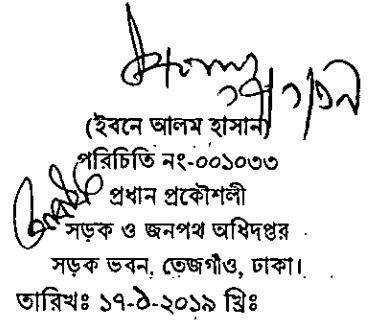 (ইবনে আলম হাসান)
পরিচিতি নং-০০১০৩৩
প্রধান প্রকৌশলী
সড়ক ও জনপথ অধিদপ্তর
সড়ক ভবন, তেজগাঁও, ঢাকা।
তারিখঃ ১৭-৯-২০১৯ খ্রিঃ